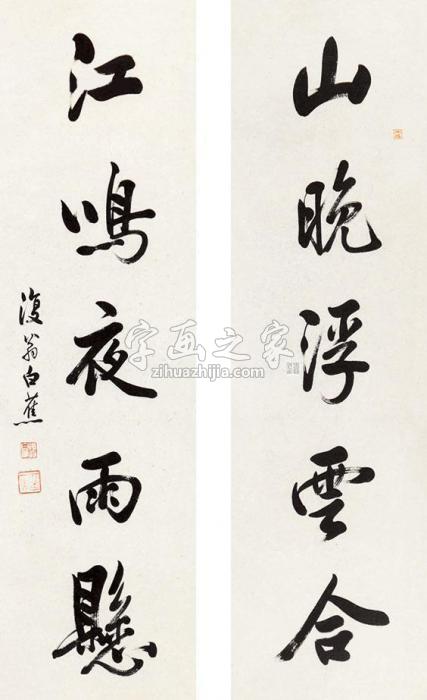 山晚浮雲合
江鳴夜雨懸
復翁白蕉
字画之家
zihuazhijia.com